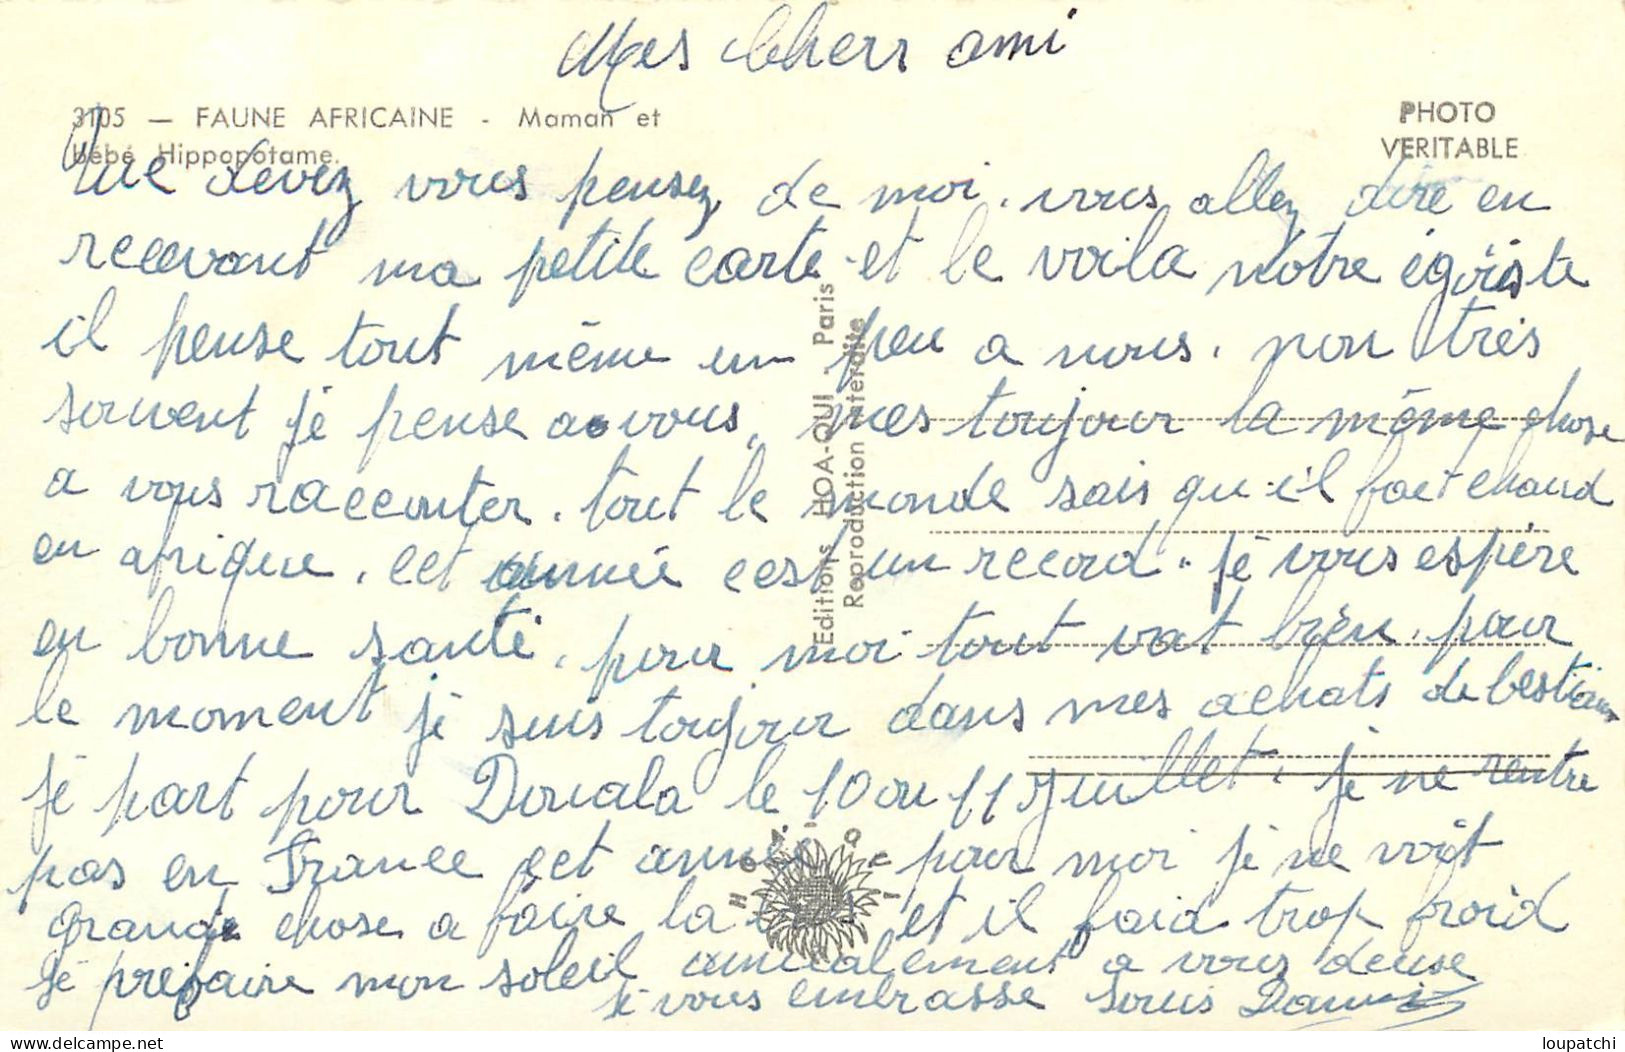 Mes Chers ami
3105 — FAUNE AFRICAINE - Maman et
Bébé Hippopotame.
PHOTO
VERITABLE
Que devez vous pensez de moi. vous allez dire en
recevant ma petite carte et le voila notre égoïste
il pense tout même un peu a nous. non très
souvent je pense a vous, mes toujour la même chose
a vous racconter. tout le monde sais qu'il fait chaud
en afrique. cet année cest un record. je vous espère
en bonne santé. pour moi tout vat bien. pour
le moment je suis toujour dans mes achats de bestiaux
je part pour Douala le 10 ou 11 Juillet. je ne rentre
pas en France cet année pour moi je ne voit
grande chose a faire la bas et il faid trop froid
je prefaire mon soleil amicalement a vous deuse
je vous embrasse
Editions HOA-QUI - Paris
Reproduction interdite
HOA-QUI
loupatchi